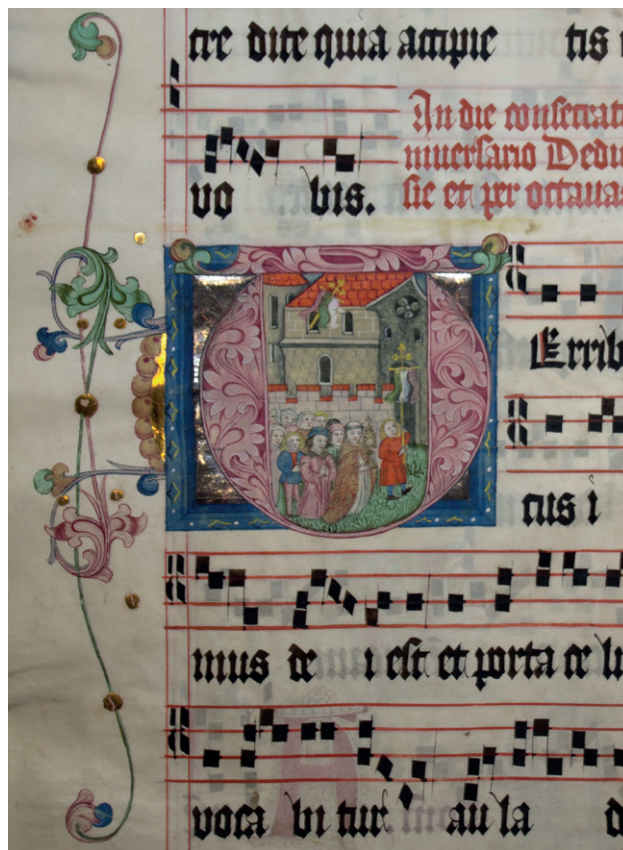 cre dite quia accipie tis
vo bis.
In die consecrat
niuersario Dedi
sie et per octauas
TErrib
tus i
mus de i est et porta ce
voca bi tur au la